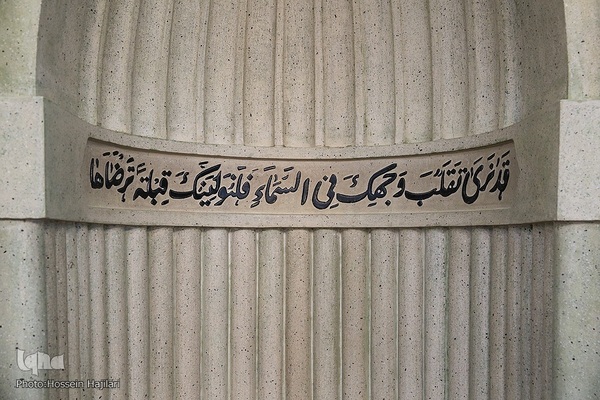 قَدْ نَرىٰ تَقَلُّبَ وَجهِكَ فِی السَّمَاءِ فَلَنُوَلِّيَنَّكَ قِبْلَةً تَرْضَاهَا
iqna
Photo:Hossein Hajilari